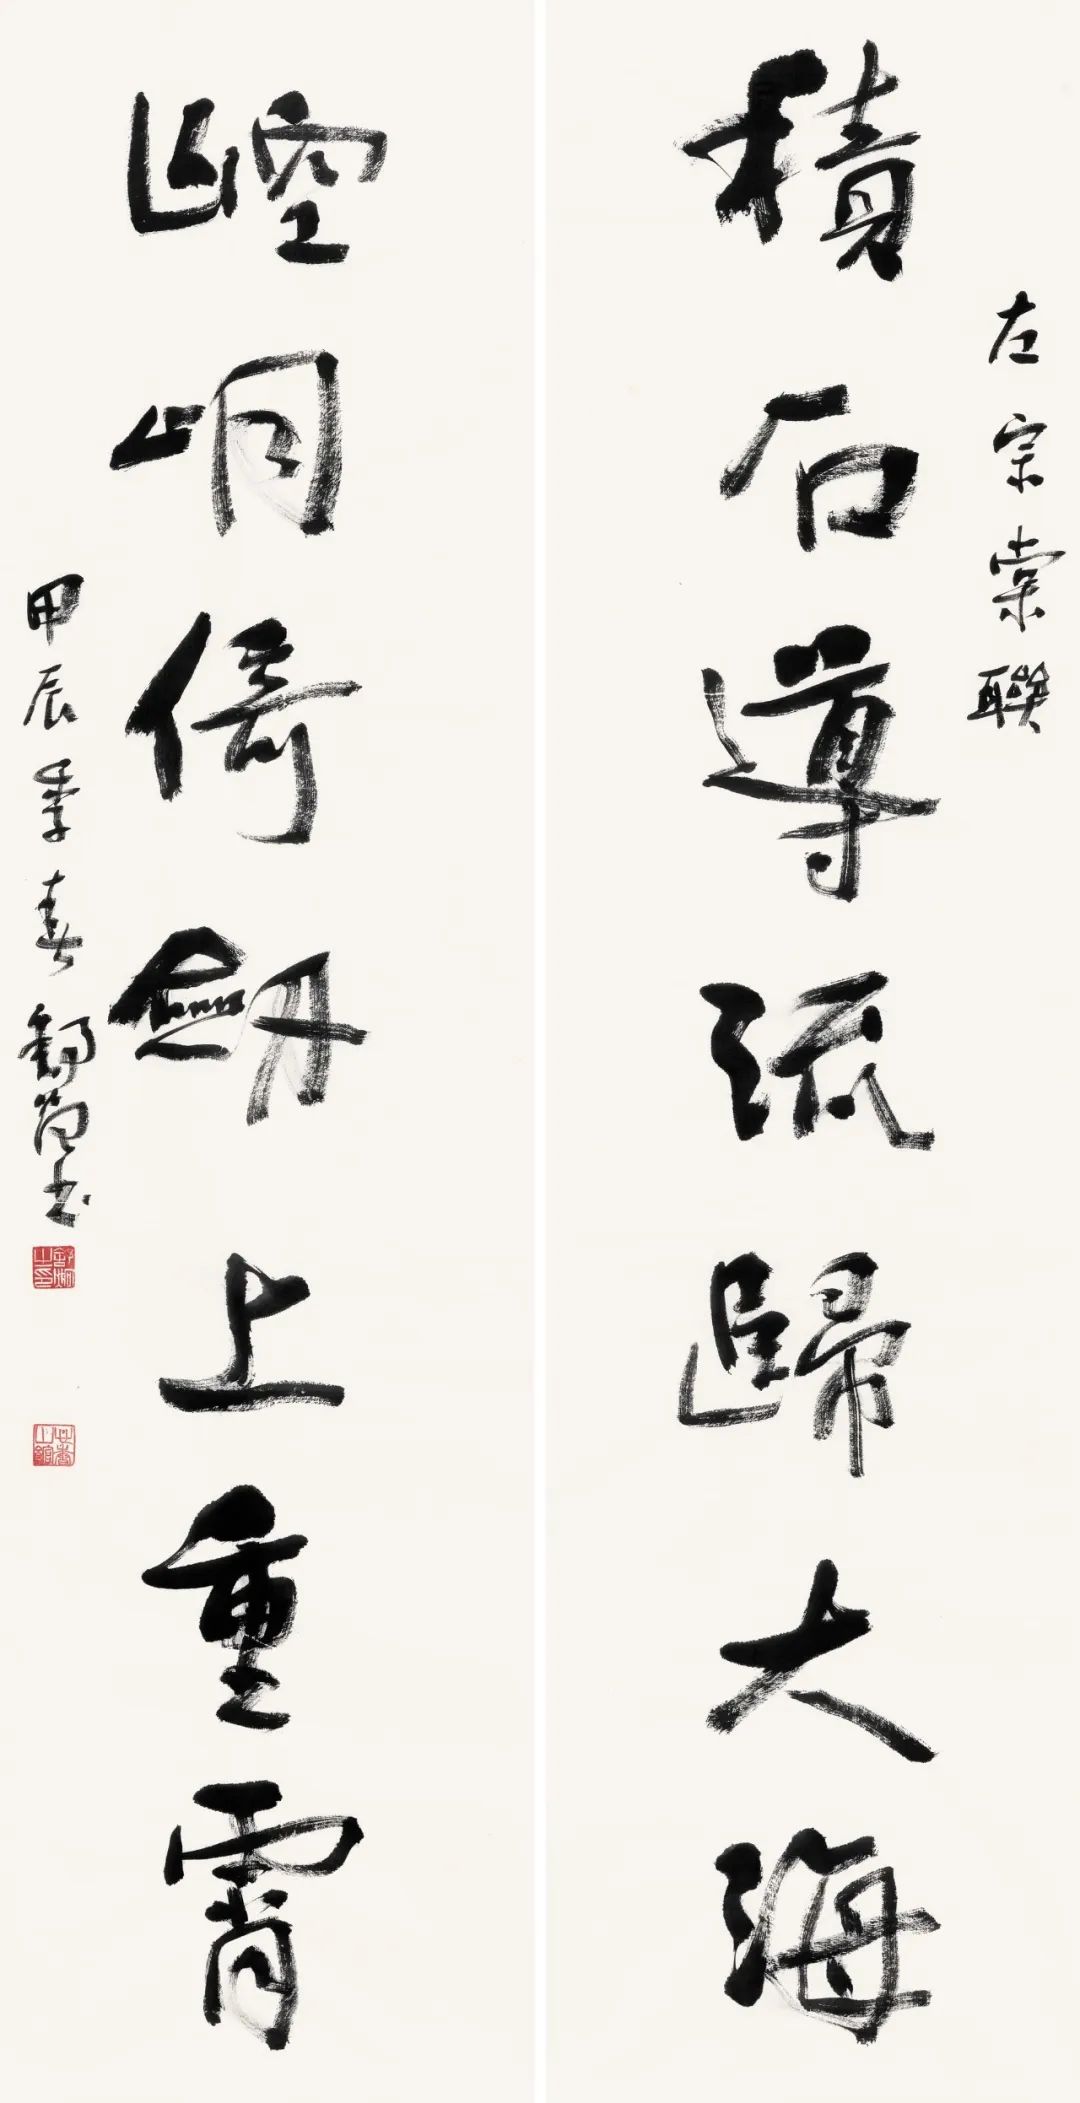 左宗棠聯
積石導流歸大海
崆峒倚劒上重霄
甲辰季春 書